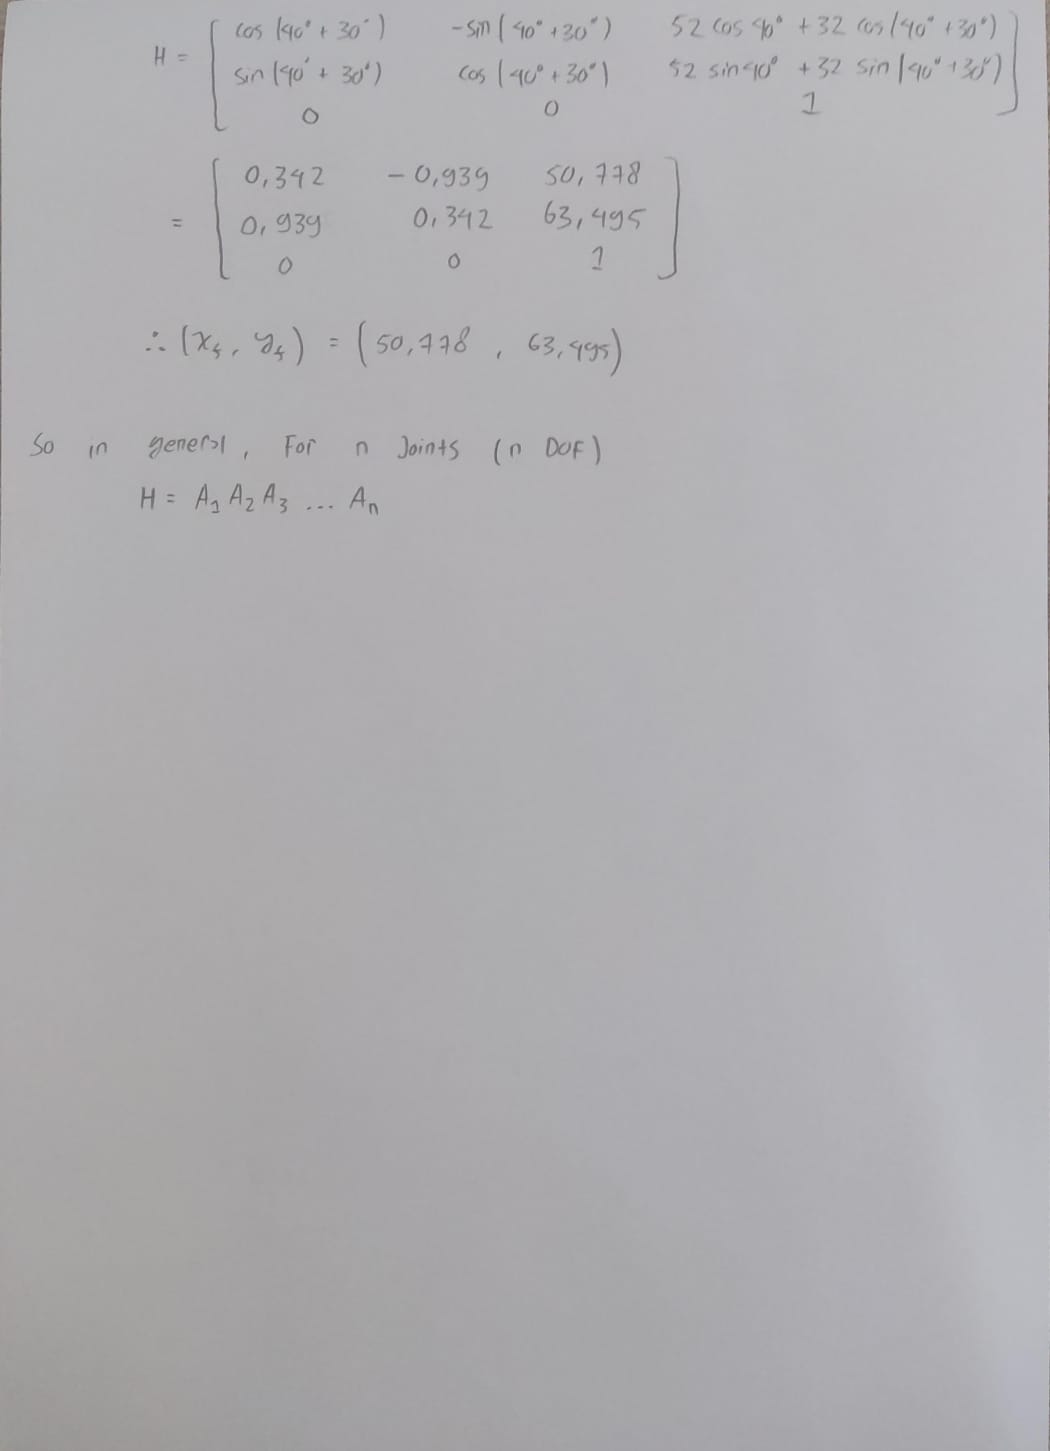 H = [ cos (40° + 30°) -sin (40° + 30°) 52 cos 40° + 32 cos (40° + 30°)
sin (40° + 30°) cos (40° + 30°) 52 sin 40° + 32 sin (40° + 30°)
0 0 1 ]
= [ 0,342 -0,939 50,778
0,939 0,342 63,495
0 0 1 ]
∴ (x₄, y₄) = (50,778 , 63,495)
So in general, For n Joints (n DOF)
H = A₁ A₂ A₃ ... Aₙ